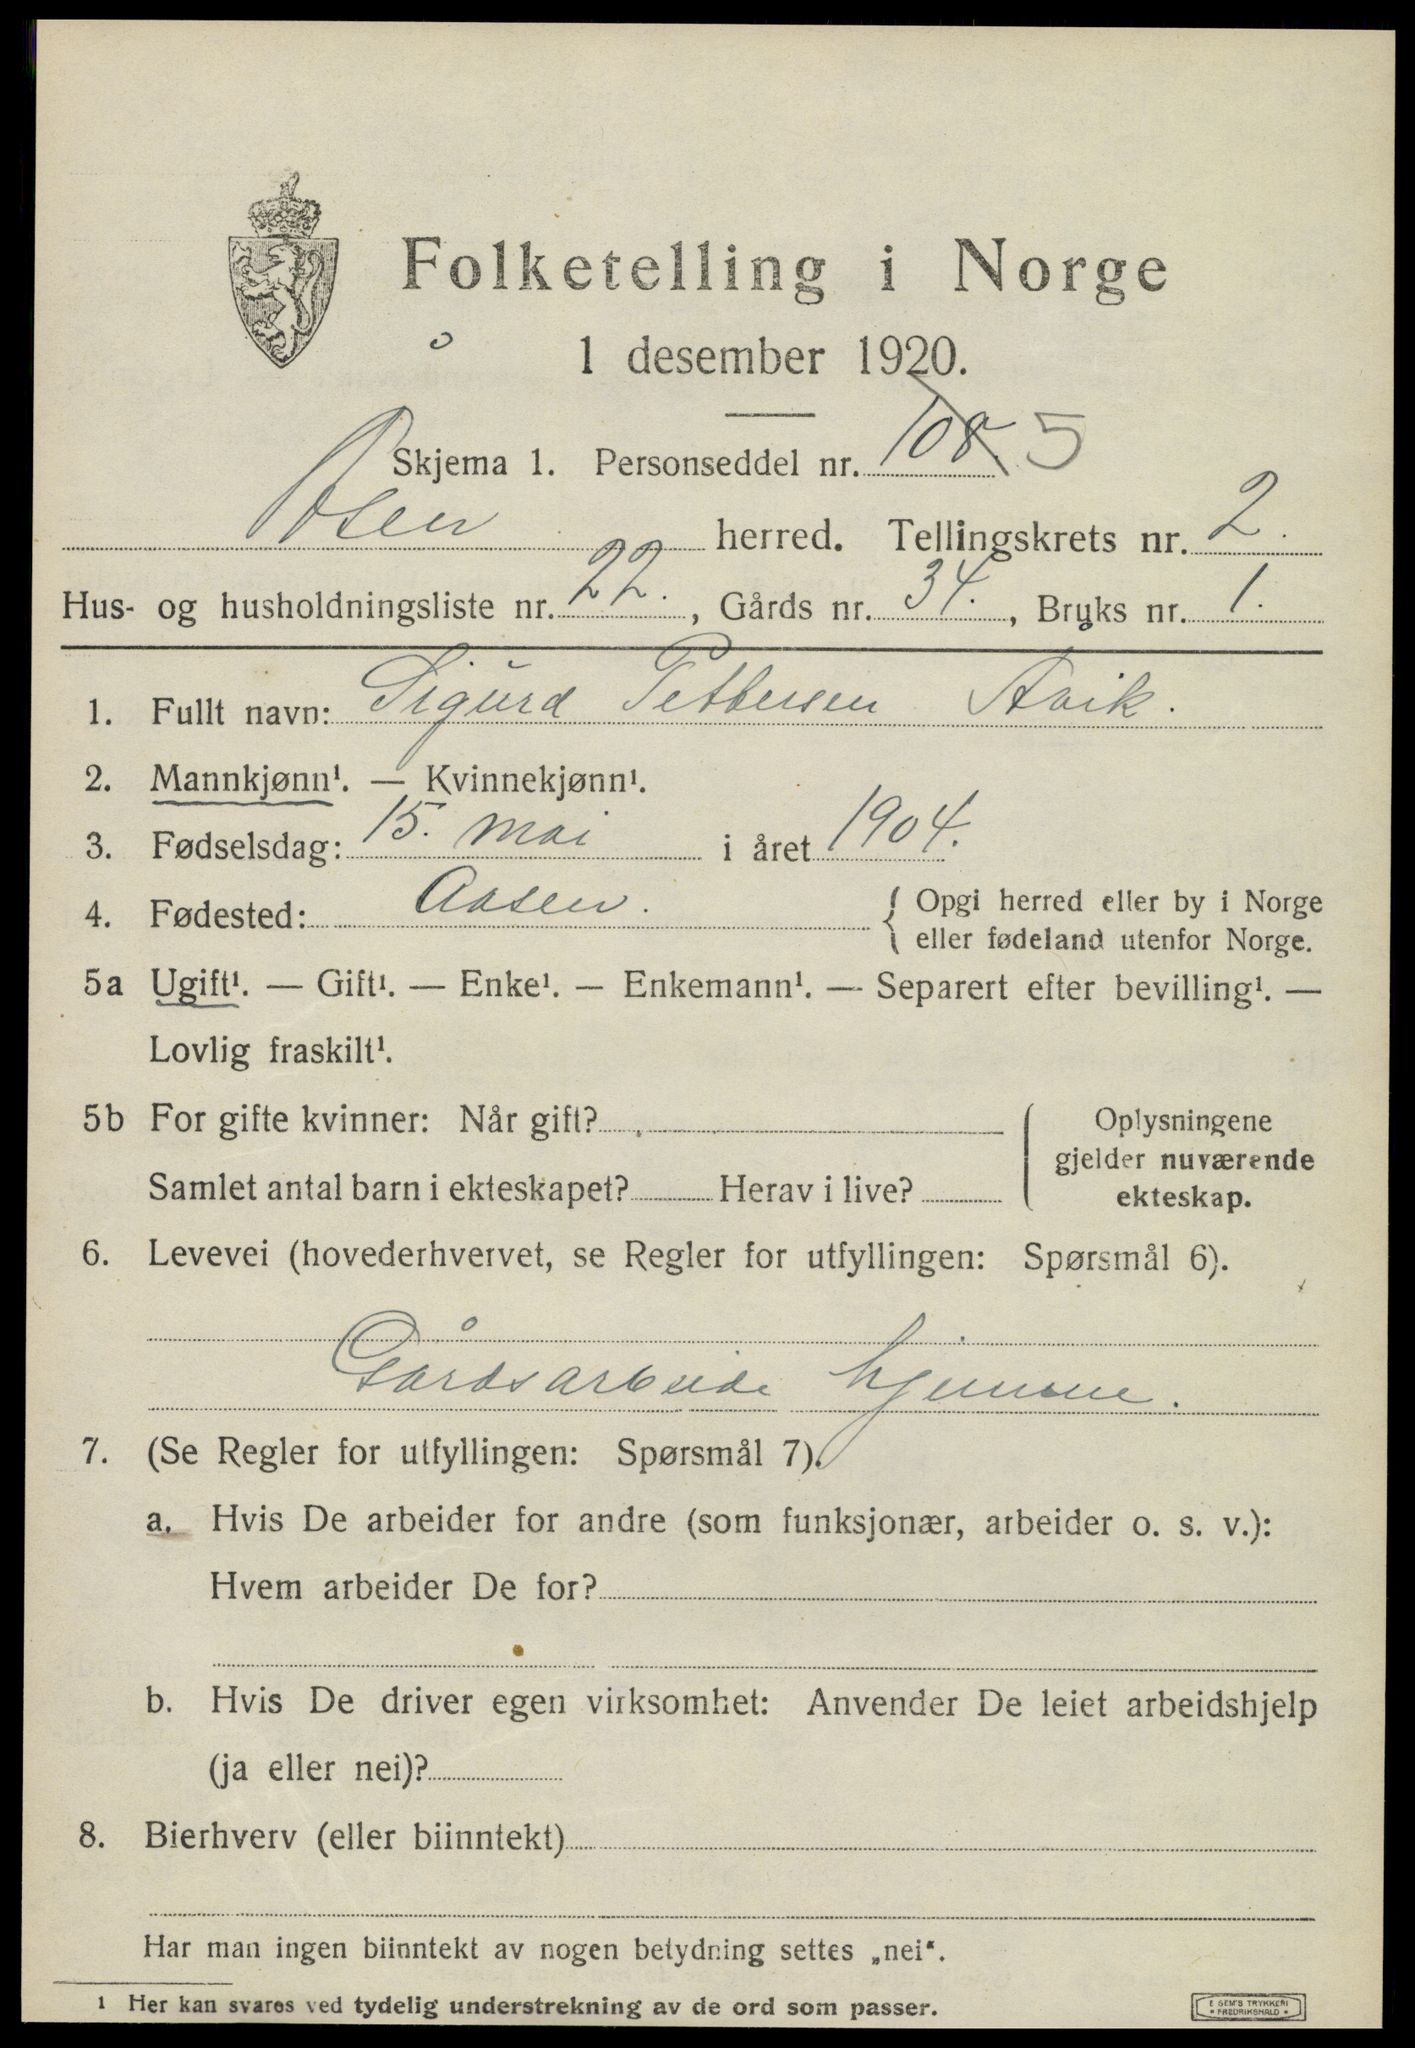 Folketelling i Norge
1 desember 1920.
Skjema 1. Personseddel nr. 108. 5
Åsen herred. Tellingskrets nr. 2.
Hus- og husholdningsliste nr. 22., Gårds nr. 34., Bruks nr. 1.
1. Fullt navn: Sigurd Pettersen Åvik.
2. Mannkjønn¹. — Kvinnekjønn¹.
3. Fødselsdag: 15. mai i året 1904.
4. Fødested: Aasen. { Opgi herred eller by i Norge
eller fødeland utenfor Norge.
5a Ugift¹. — Gift¹. — Enke¹. — Enkemann¹. — Separert efter bevilling¹. —
Lovlig fraskilt¹.
5b For gifte kvinner: Når gift?
Samlet antal barn i ekteskapet? Herav i live?
Oplysningene
gjelder nuværende
ekteskap.
6. Levevei (hovederhvervet, se Regler for utfyllingen: Spørsmål 6).
Gårdsarbeide hjemme.
7. (Se Regler for utfyllingen: Spørsmål 7).
a. Hvis De arbeider for andre (som funksjonær, arbeider o. s. v.):
Hvem arbeider De for?
b. Hvis De driver egen virksomhet: Anvender De leiet arbeidshjelp
(ja eller nei)?
8. Bierhverv (eller biinntekt)
Har man ingen biinntekt av nogen betydning settes „nei“.
1 Her kan svares ved tydelig understrekning av de ord som passer.
E SEM'S TRYKKERI
* FREDRIKSHALD *